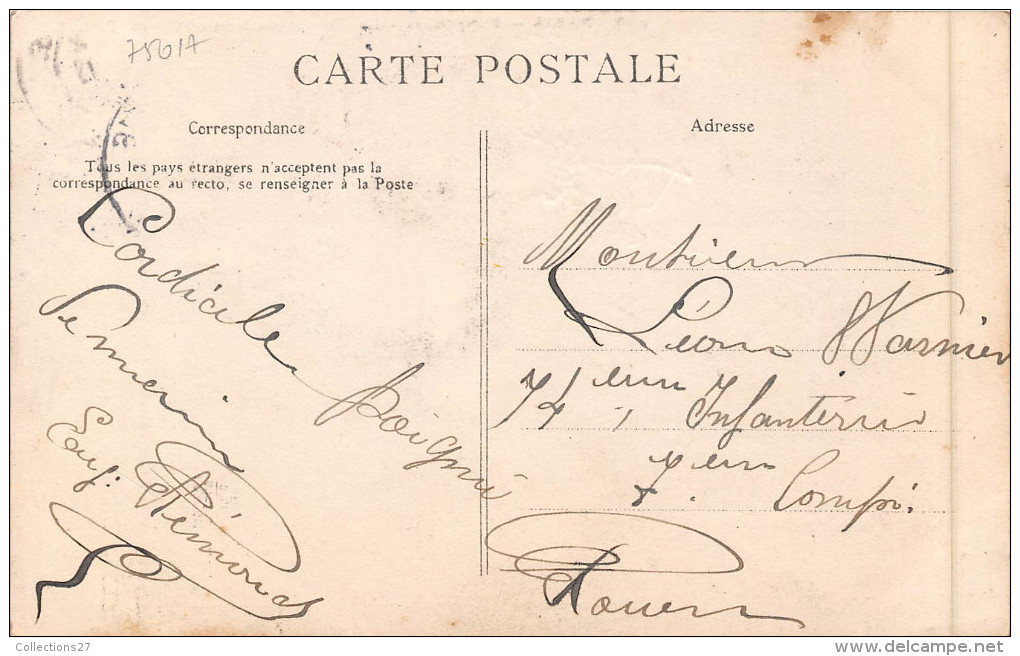 75017
CARTE POSTALE
Correspondance
Tous les pays étrangers n'acceptent pas la
correspondance au recto, se renseigner à la Poste
Cordiale Poignée
Eug. Rémond
Adresse
Monsieur
Léon Warnier
74eme Infanterie
7eme Compie
Rouen
Collections27
www.delcampe.net